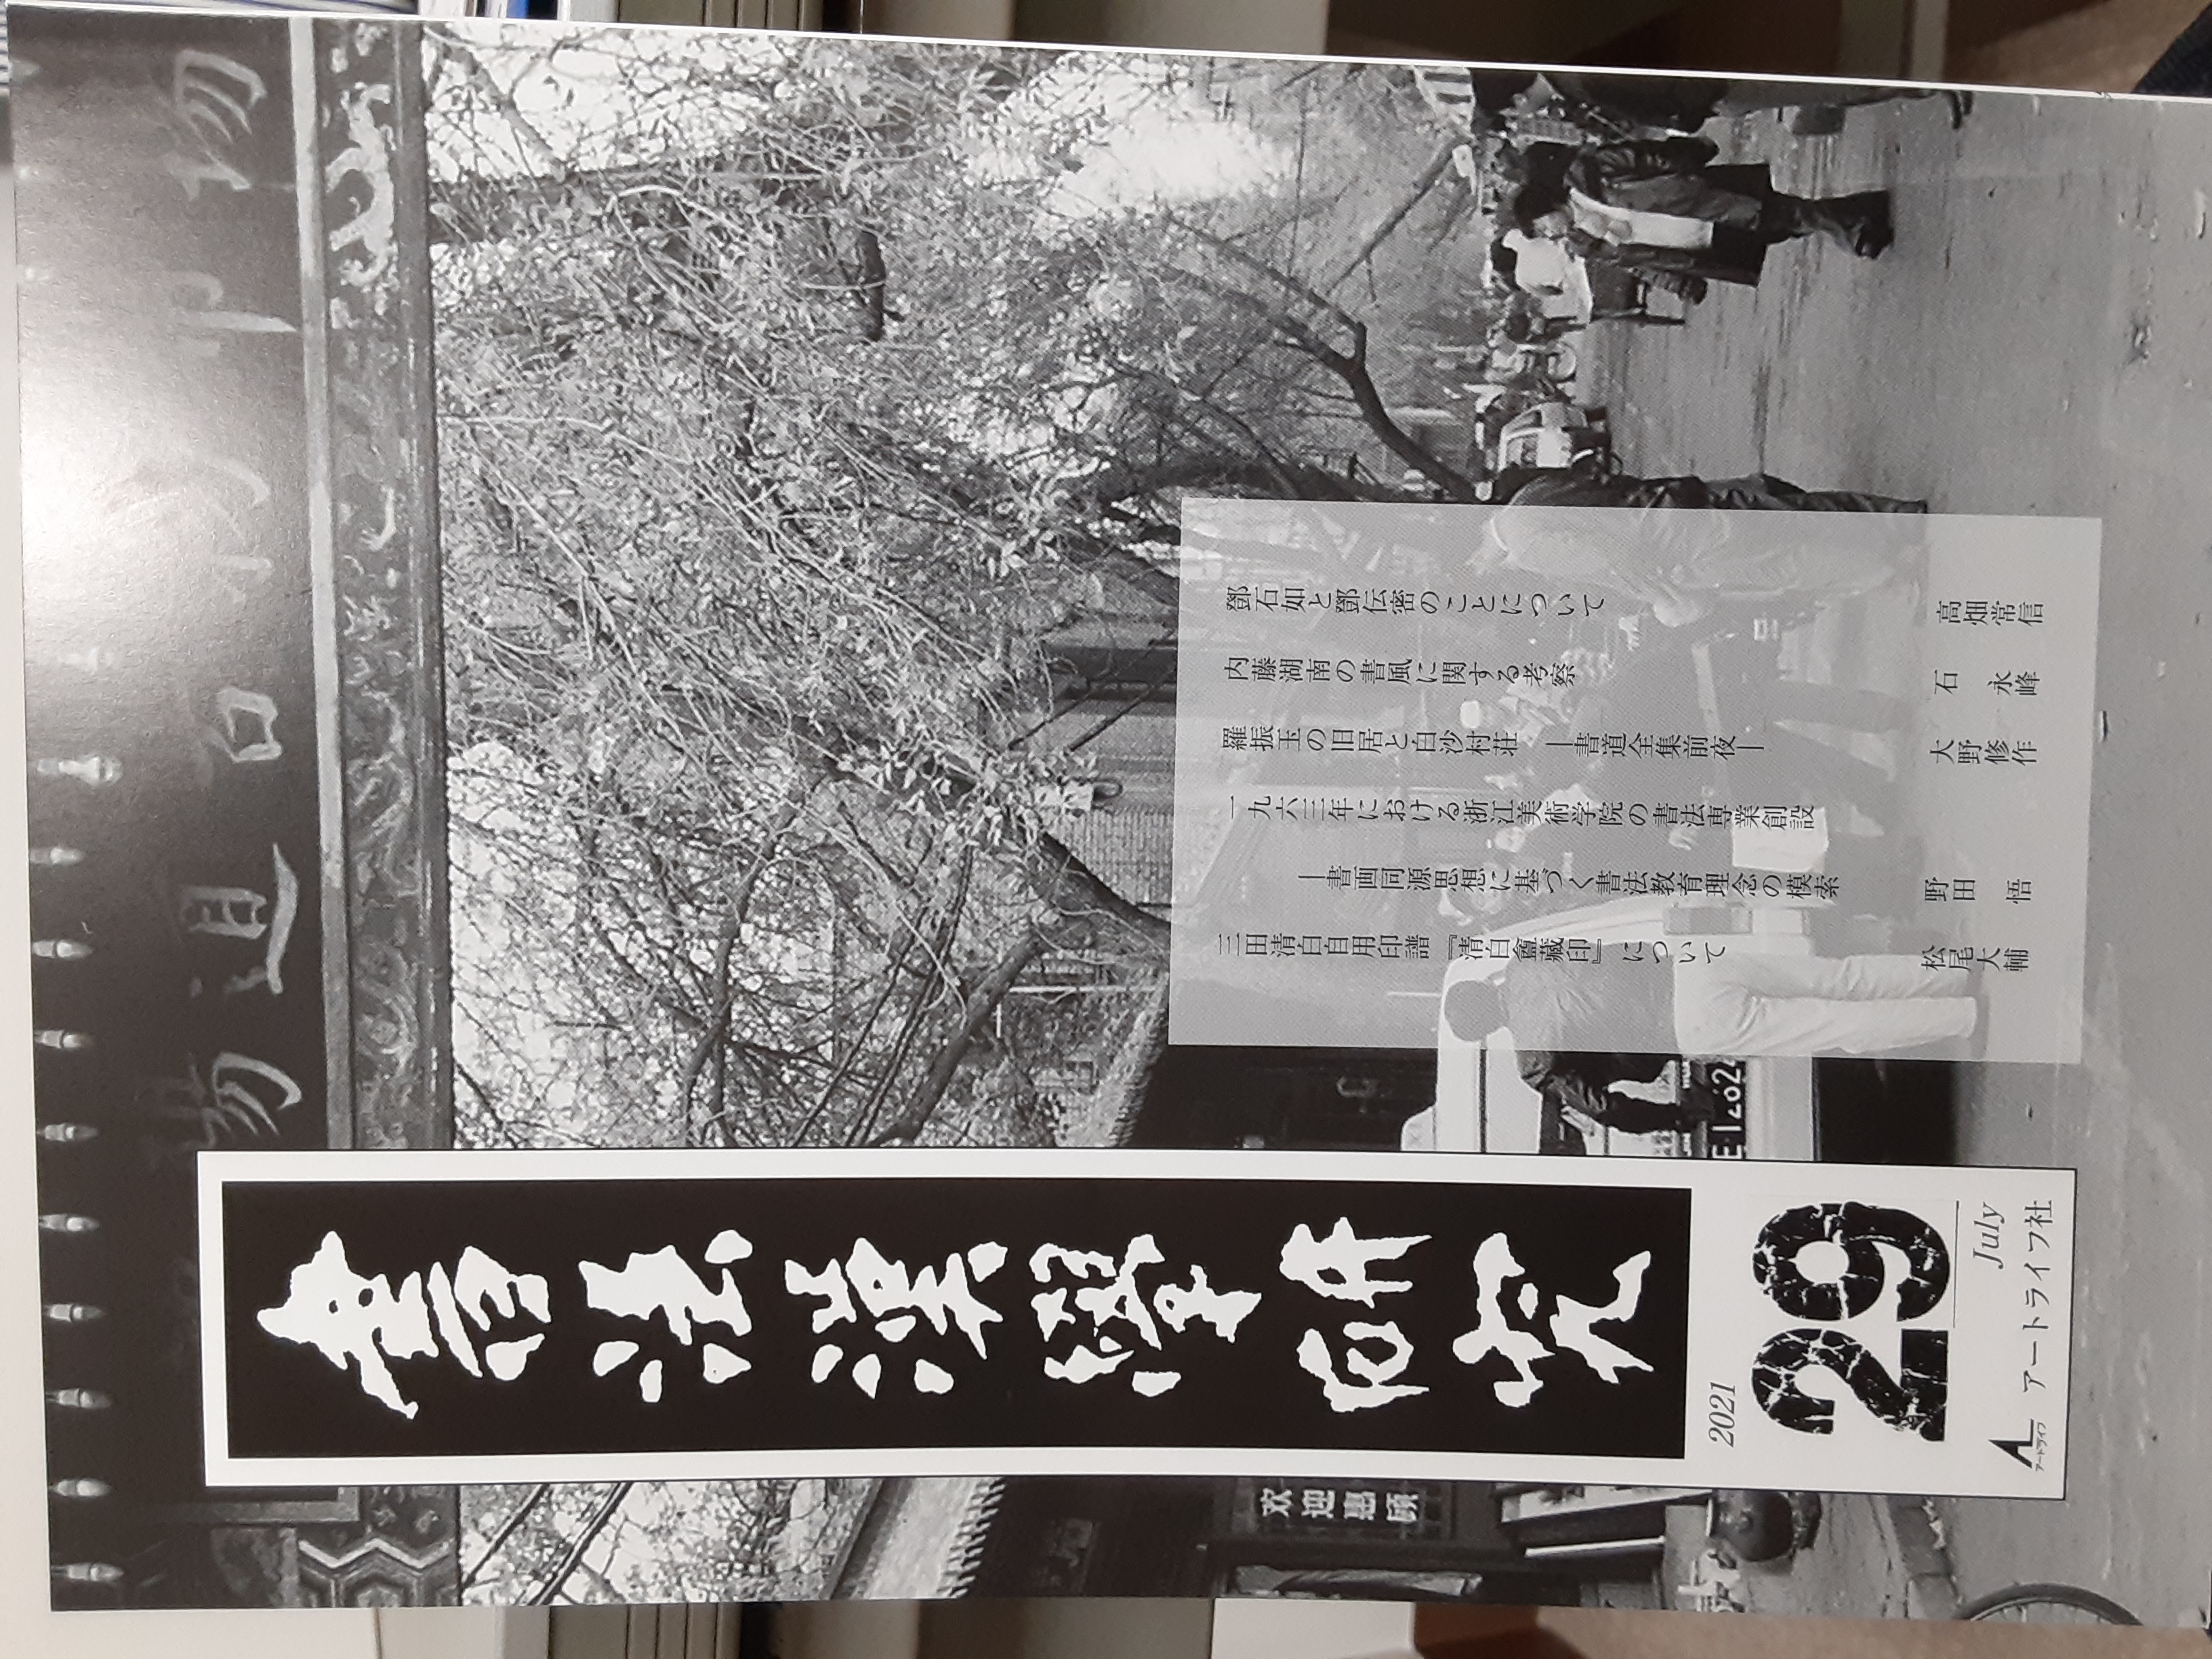 書法漢學研究
2021
29
July
アートライフ
アートライフ社
鄧石如と鄧伝密のことについて 高畑常信
内藤湖南の書風に関する考察 石 永峰
羅振玉の旧居と白沙村荘 ―書道全集前夜― 大野修作
一九六三年における浙江美術学院の書法専業創設
―書画同源思想に基づく書法教育理念の模索 野田 悟
三田清白自用印譜『清白盦蔵印』について 松尾大輔
欢迎惠顾